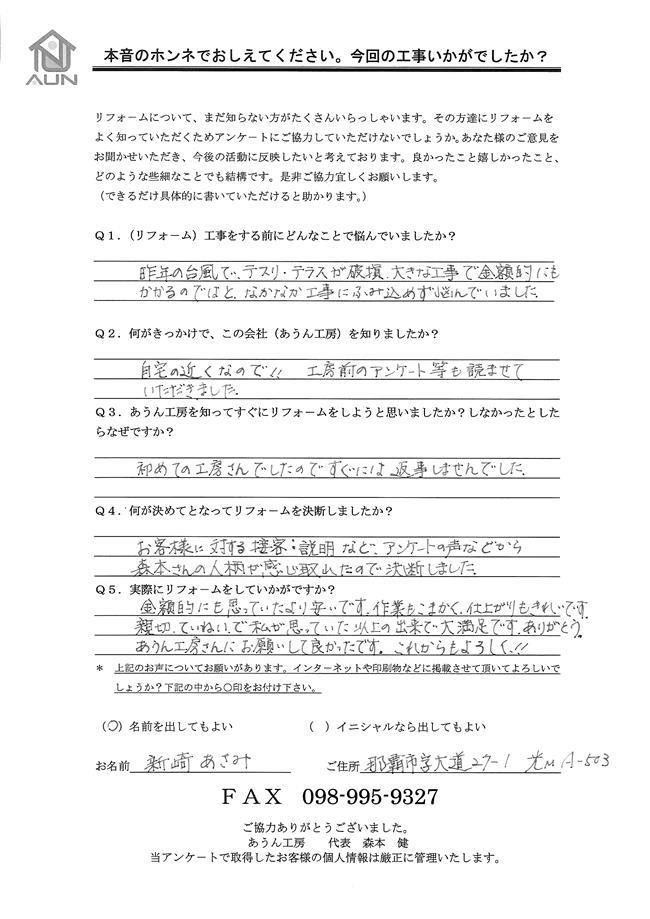 AUN
本音のホンネでおしえてください。今回の工事いかがでしたか？
リフォームについて、まだ知らない方がたくさんいらっしゃいます。その方達にリフォームを
よく知っていただくためアンケートにご協力していただけないでしょうか。あなた様のご意見を
お聞かせいただき、今後の活動に反映したいと考えております。良かったこと嬉しかったこと、
どのような些細なことでも結構です。是非ご協力宜しくお願いします。
（できるだけ具体的に書いていただけると助かります。）
Ｑ１．（リフォーム）工事をする前にどんなことで悩んでいましたか？
昨年の台風で、テスリ・テラスが破損、大きな工事で金額的にも
かかるのではと、なかなか工事にふみ込めず悩んでいました。
Ｑ２．何がきっかけで、この会社（あうん工房）を知りましたか？
自宅の近くなので!! 工房前のアンケート等も読ませて
いただきました。
Ｑ３．あうん工房を知ってすぐにリフォームをしようと思いましたか？しなかったとした
らなぜですか？
初めての工房さんでしたのですぐには返事しませんでした。
Ｑ４．何が決めてとなってリフォームを決断しましたか？
お客様に対する接客：説明など、アンケートの声などから
森本さんの人柄が感じ取れたので決断しました。
Ｑ５．実際にリフォームをしていかがですか？
金額的にも思っていたより安いです。作業もこまかく、仕上がりもきれいです。
親切、ていねいで私が思っていた以上の出来で大満足です。ありがとう。
あうん工房さんにお願いして良かったです。これからもよろしく!!
＊ 上記のお声についてお願いがあります。インターネットや印刷物などに掲載させて頂いてよろしいで
しょうか？下記の中から〇印をお付け下さい。
（〇）名前を出してもよい （ ）イニシャルなら出してもよい
お名前 新崎 あさみ ご住所 那覇市字大道27-1 光M A-503
ＦＡＸ 098-995-9327
ご協力ありがとうございました。
あうん工房 代表 森本 健
当アンケートで取得したお客様の個人情報は厳正に管理いたします。